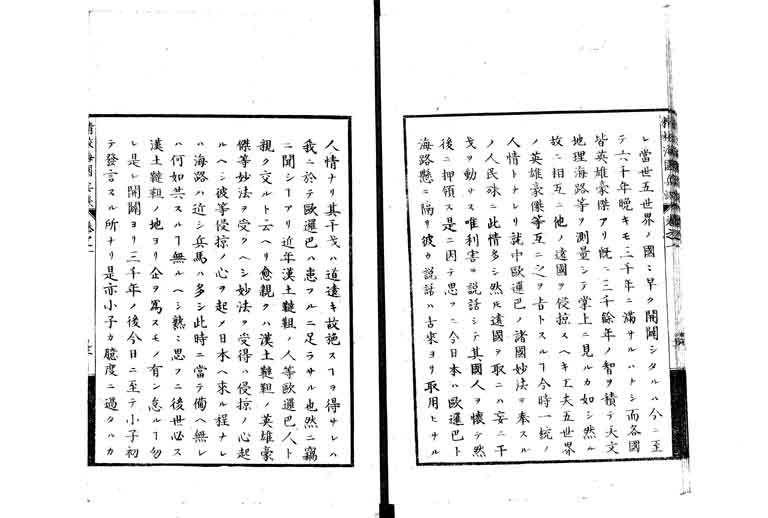 レ當世五世界ノ國〻早ク開闢シタルハ今ニ至
テ六千年晩キモ三千年ニ滿サルハトシ而各國
皆英雄豪傑アリ旣ニ三千餘年ノ智ヲ積テ天文
地理海路等ヲ測量シテ掌上ニ見ルカ如シ然ル
故ニ相互ニ他ノ遠國ヲ侵掠スヘキ工夫五世界
ノ英雄豪傑等互ニ之ヲ吉トスルヿ今時一統ノ
人情トナレリ就中歐邏巴ノ諸國妙法ヲ奉スル
ノ人民殊ニ此情多シ然ルニ遠國ヲ取ニハ妄ニ干
戈ヲ動サス唯利害ヲ說話シテ其國人ヲ懷テ然
後ニ押領ス是ニ因テ思フニ今日本ハ歐邏巴ト
海路懸ニ隔リ彼カ說話ハ古來ヨリ取用ヒサル
人情ナリ其干戈ハ道遠キ故施スヿヲ得サレハ
我ニ於テ歐邏巴ハ患フルニ足ラサル也然ニ竊
ニ聞シヿアリ近年漢土韃靼ノ人等歐邏巴人ト
親ク交ルト云ヘリ愈親クハ漢土韃靼ノ英雄豪
傑等妙法ヲ受クヘシ妙法ヲ受得ハ侵掠ノ心起
ルヘシ彼等侵掠ノ心ヲ起メ日本ヘ來ル程ナレ
ハ海路ハ近シ兵馬ハ多シ此時ニ當テ備ヘ無レ
ハ何如共スルヿ無ルヘシ熟〻思フニ後世必ス
漢土韃靼ノ地ヨリ企ヲ爲スモノ有ン怠ルヿ勿
レ是レ開闢ヨリ三千年ノ後今日ニ至テ小子初
テ發言スル所ナリ是亦小子カ臆度ニ過タルカ